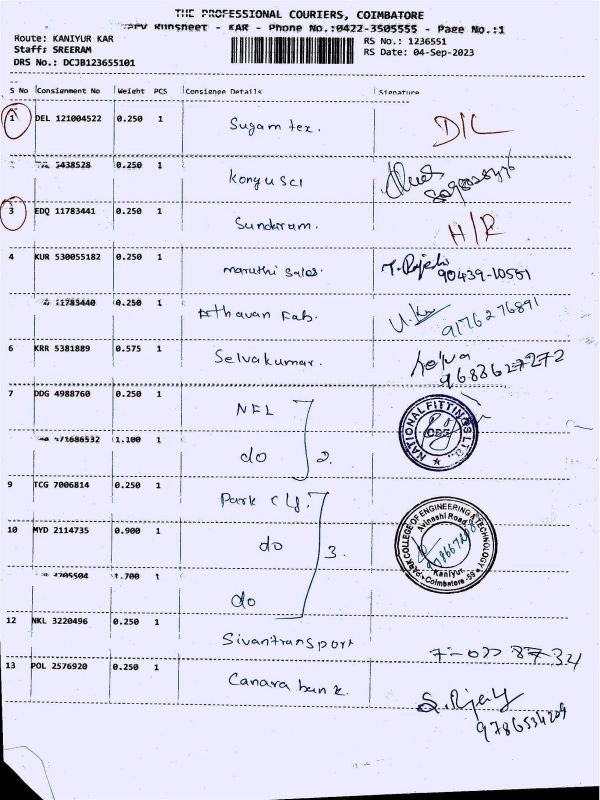 THE PROFESSIONAL COURIERS, COIMBATORE
Runsheet - KAR - Phone No.:0422-3505555 - Page No.:1
Route: KANIYUR KAR
RS No.: 1236551
Staff: SREERAM
RS Date: 04-Sep-2023
DRS No.: DCJB123655101
S No Consignment No Weight PCS Consignee Details Signature
1 DEL 121004522 0.250 1 Sugam tex. D/L
3438528 0.250 1 Kongu SCI
3 EDQ 11783441 0.250 1 Sundaram. H/R
4 KUR 530055182 0.250 1 maruthi sales. T. Rajesh
90439-10551
11783440 0.250 1 Athavan Fab.
91762 76891
6 KRR 5381889 0.575 1 Selvakumar.
9688627272
7 DDG 4988760 0.250 1 NFL
NATIONAL FITTINGS LTD.
371686532 1.100 1 do 2.
9 TCG 7006814 0.250 1 Park clg.
PARK COLLEGE OF ENGINEERING & TECHNOLOGY
Avinashi Road,
10 MYD 2114735 0.900 1 do 3.
Kaniyur,
Coimbatore-59
1.700 1 do
12 NKL 3220496 0.250 1 Sivantransport
13 POL 2576920 0.250 1 Canara bank.
9786534209